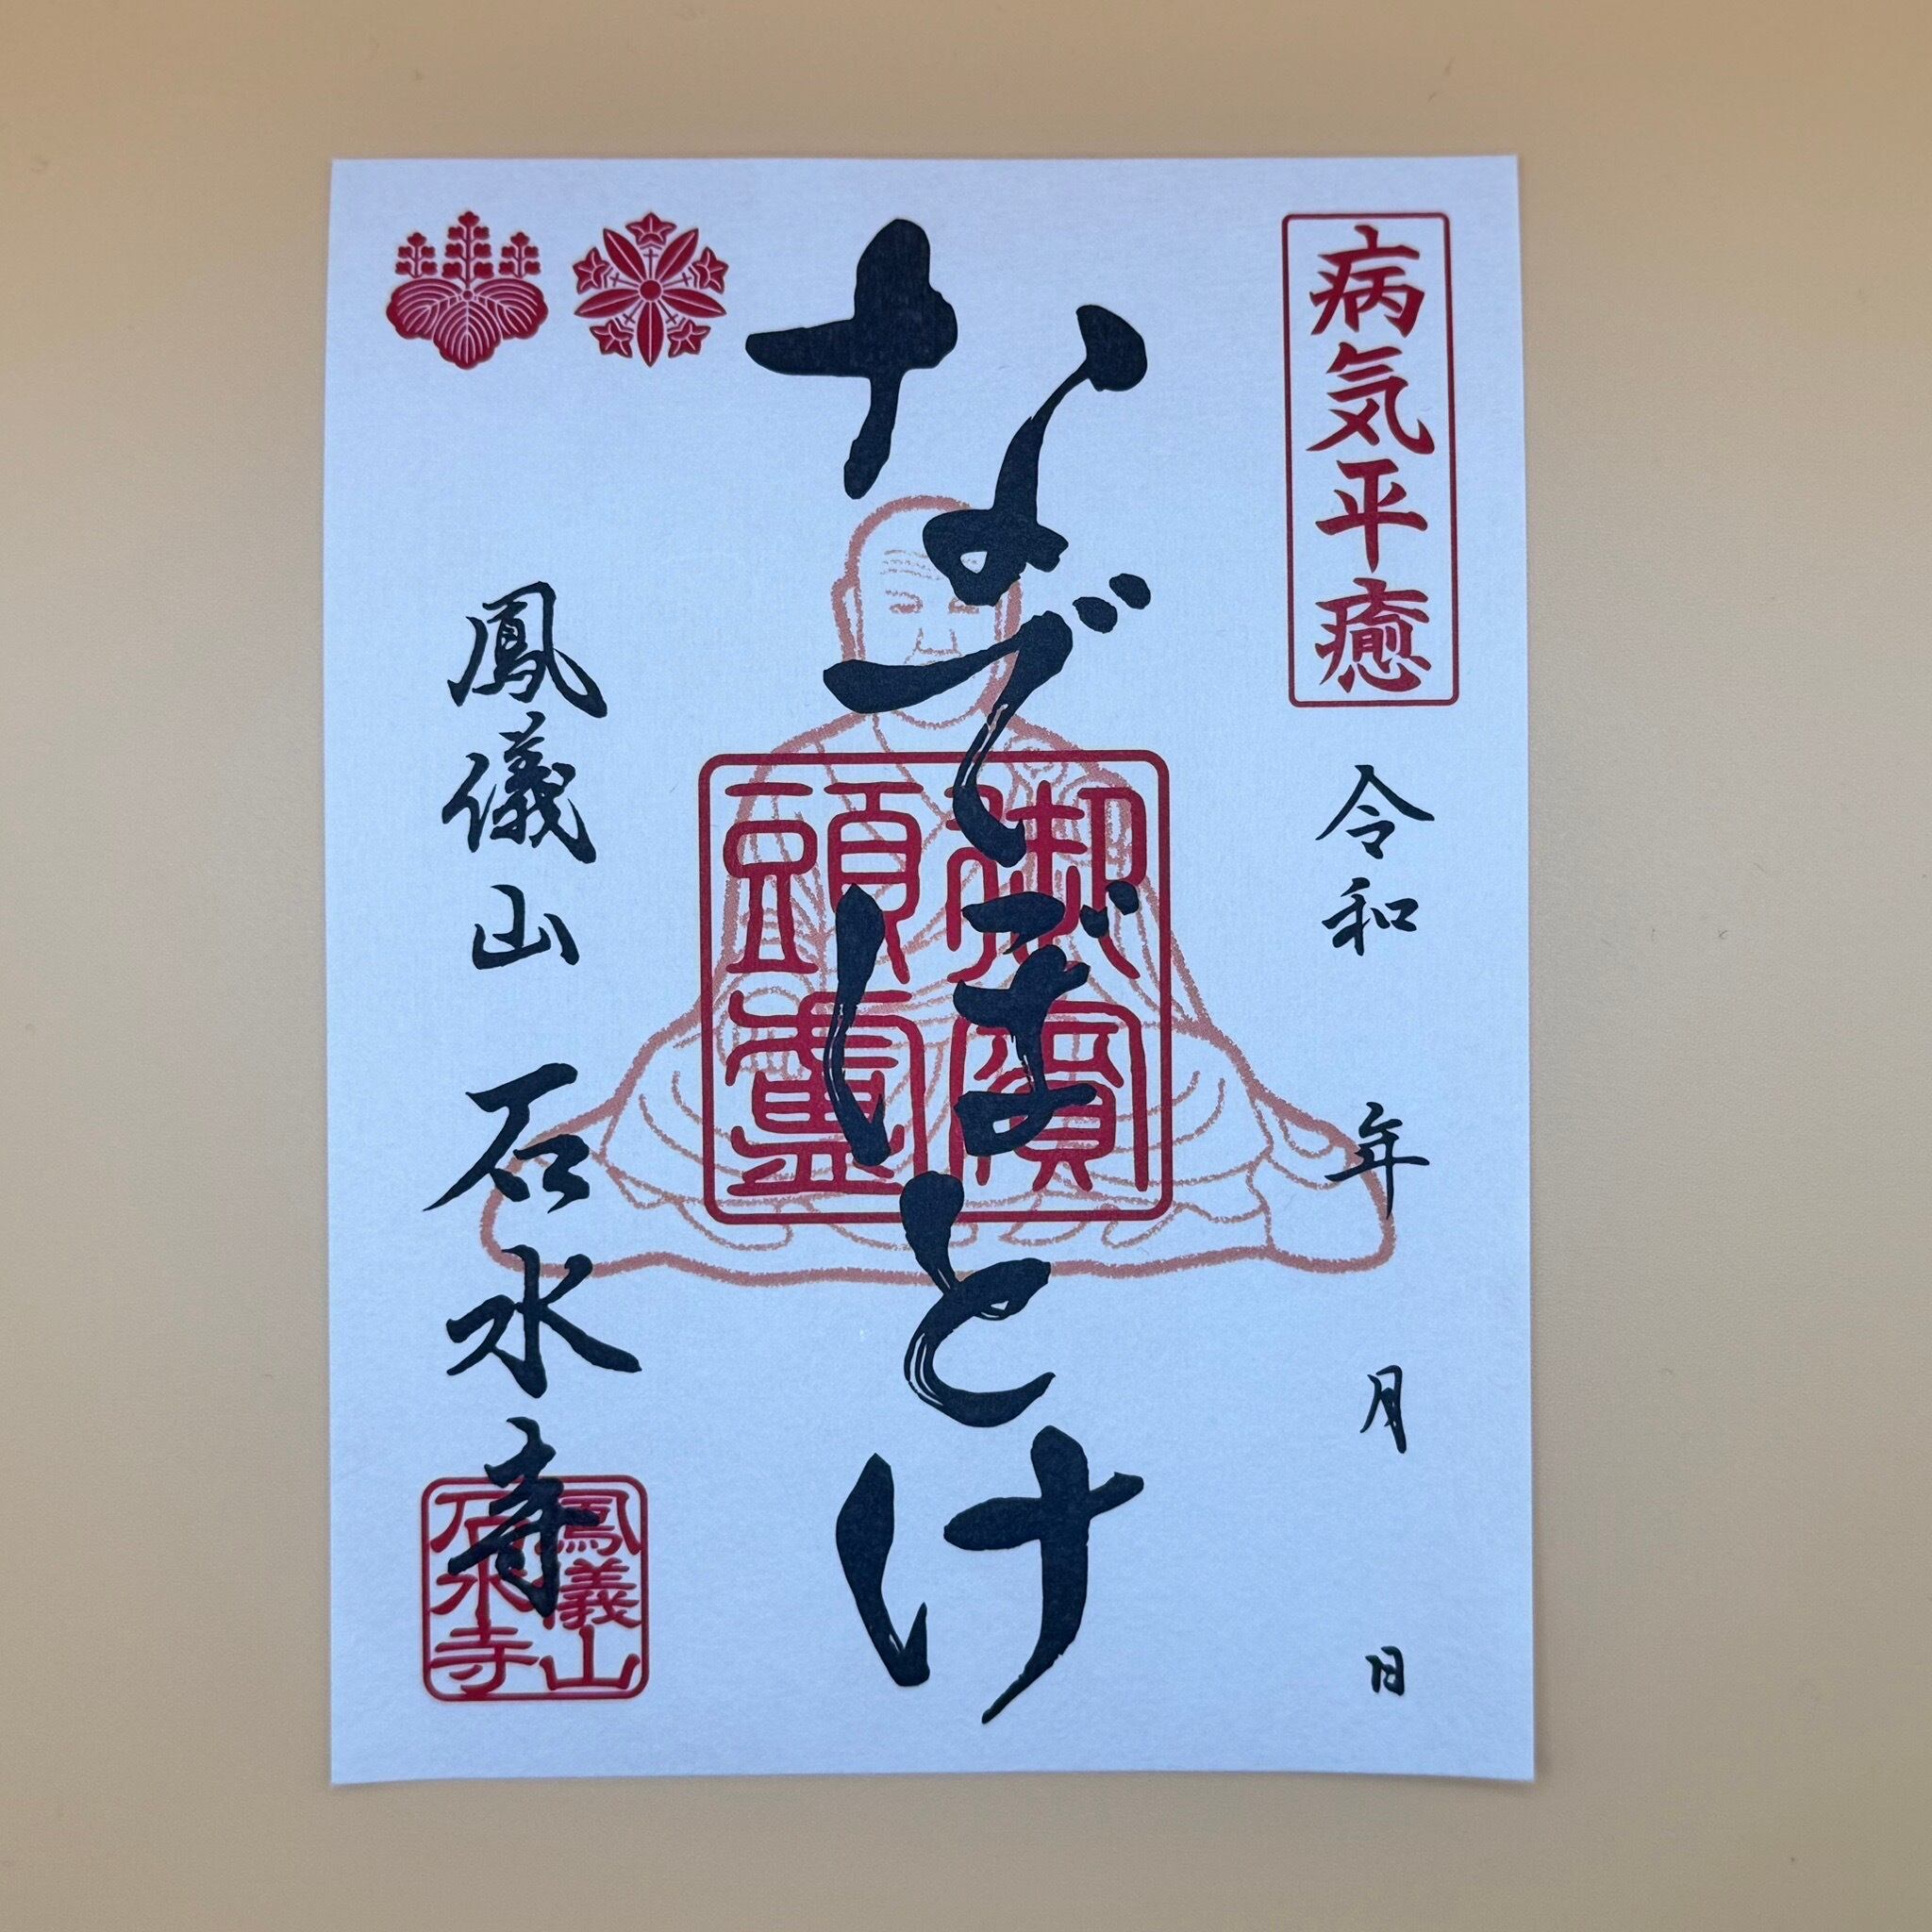 病気平癒
令和 年 月 日
なでぼとけ
御賓頭盧
鳳儀山 石水寺
鳳儀山石水寺